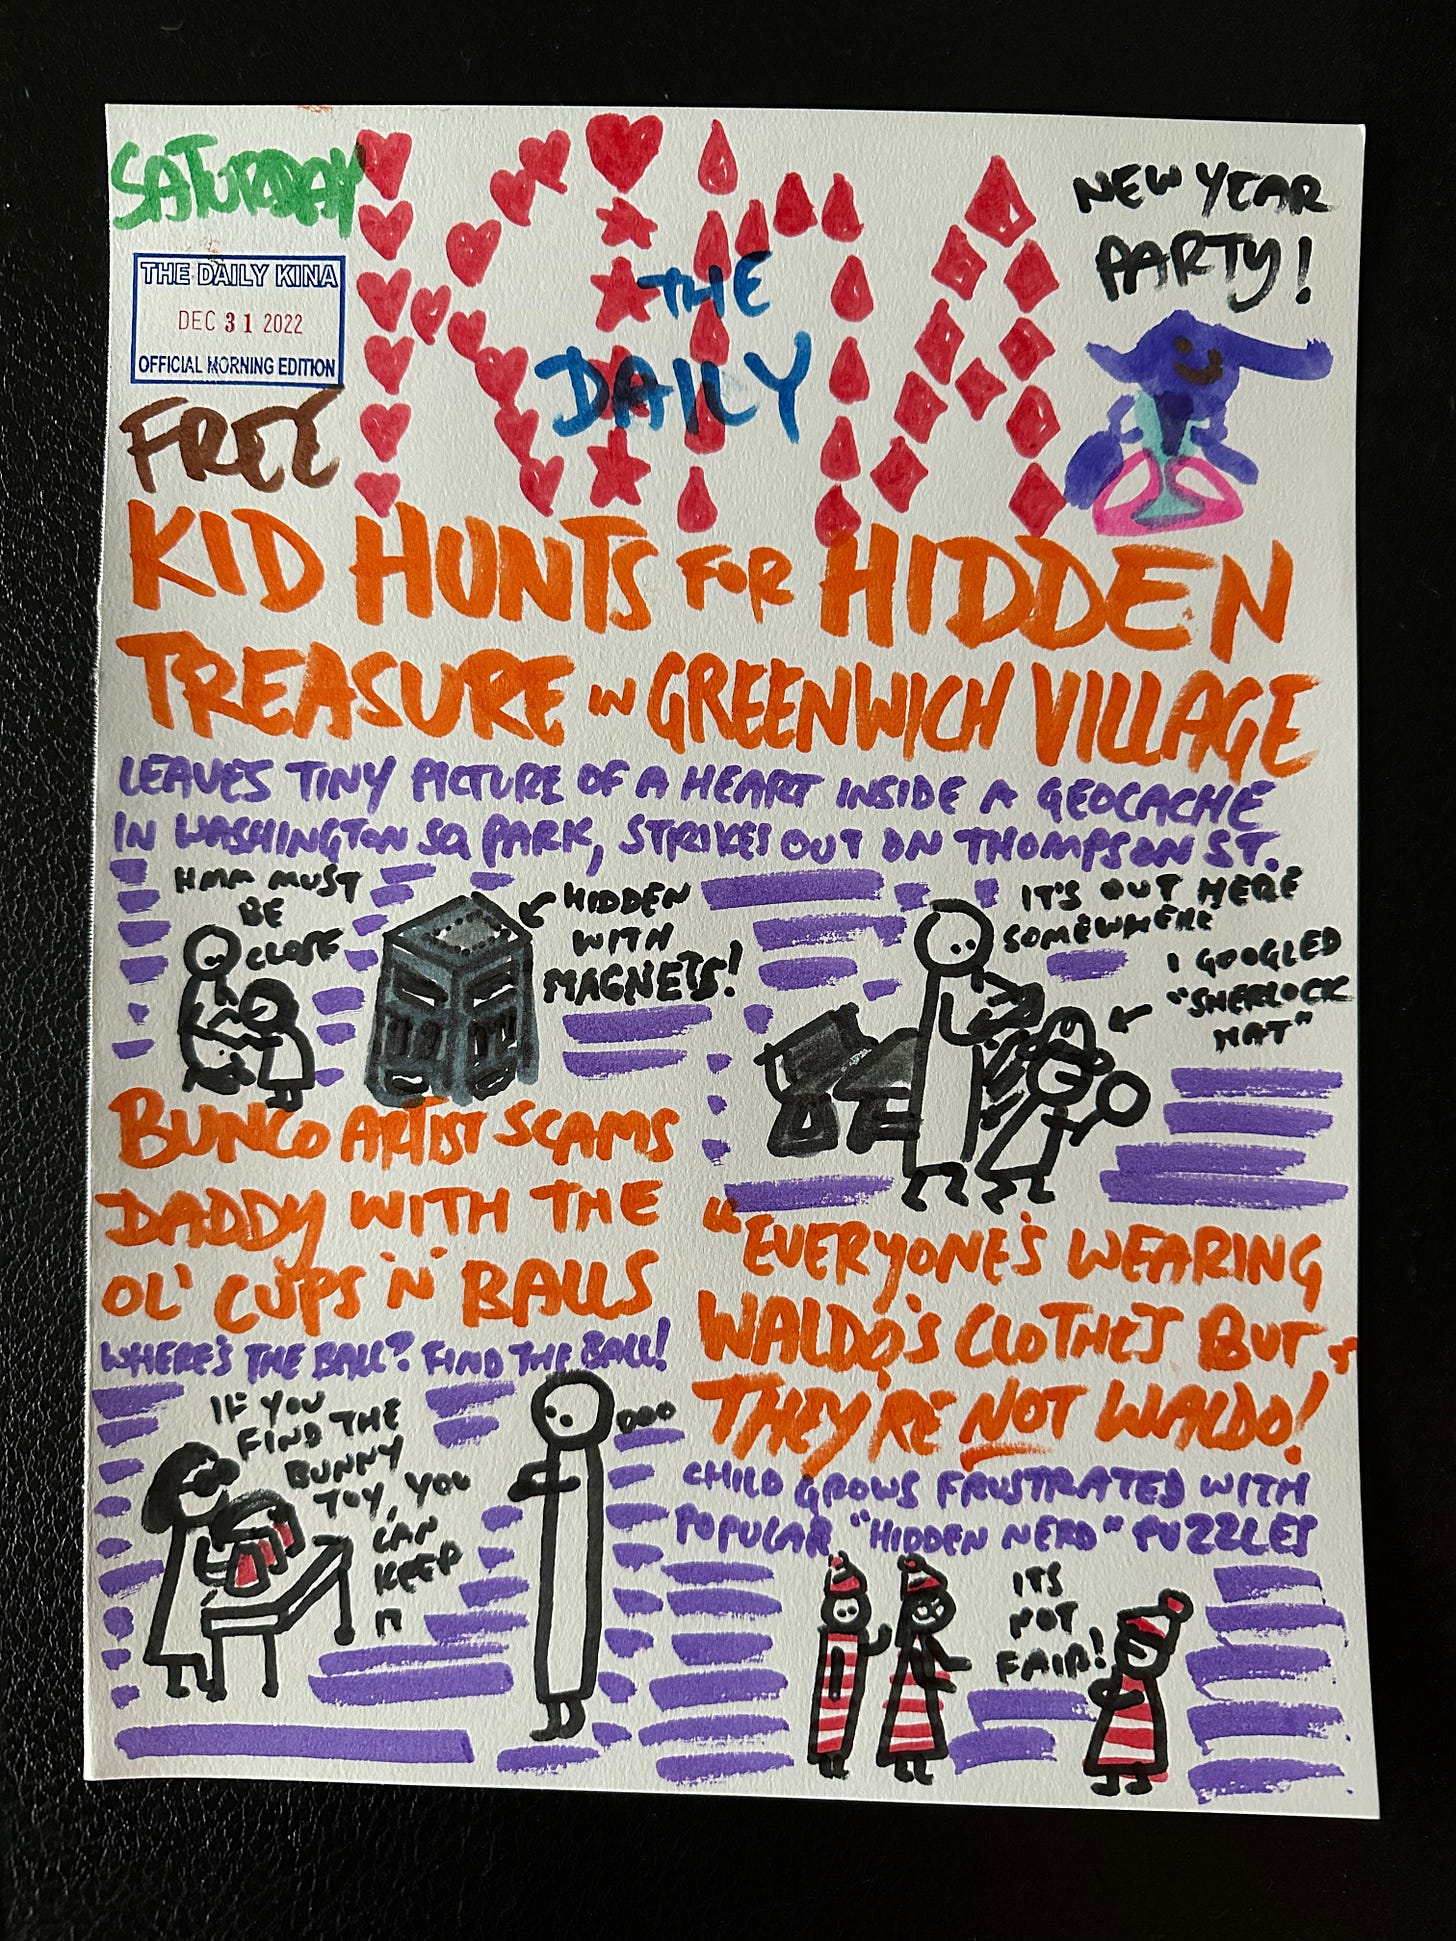 SATURDAY
THE DAILY KINA
DEC 31 2022
OFFICIAL MORNING EDITION
FREE
KINA
THE
DAILY
NEW YEAR
PARTY!
KID HUNTS FOR HIDDEN
TREASURE IN GREENWICH VILLAGE
LEAVES TINY PICTURE OF A HEART INSIDE A GEOCACHE
IN WASHINGTON SQ PARK, STRIKES OUT ON THOMPSON ST.
HMM MUST
BE
CLOSE
HIDDEN
WITH
MAGNETS!
IT'S OUT HERE
SOMEWHERE
I GOOGLED
"SHERLOCK
HAT"
BUNCO ARTIST SCAMS
DADDY WITH THE
OL' CUPS 'N' BALLS
WHERE'S THE BALL? FIND THE BALL!
IF YOU
FIND THE
BUNNY
TOY, YOU
CAN
KEEP
IT
OOO
"EVERYONE'S WEARING
WALDO'S CLOTHES BUT
THEY'RE NOT WALDO!"
CHILD GROWS FRUSTRATED WITH
POPULAR "HIDDEN NERD" PUZZLES
ITS
NOT
FAIR!